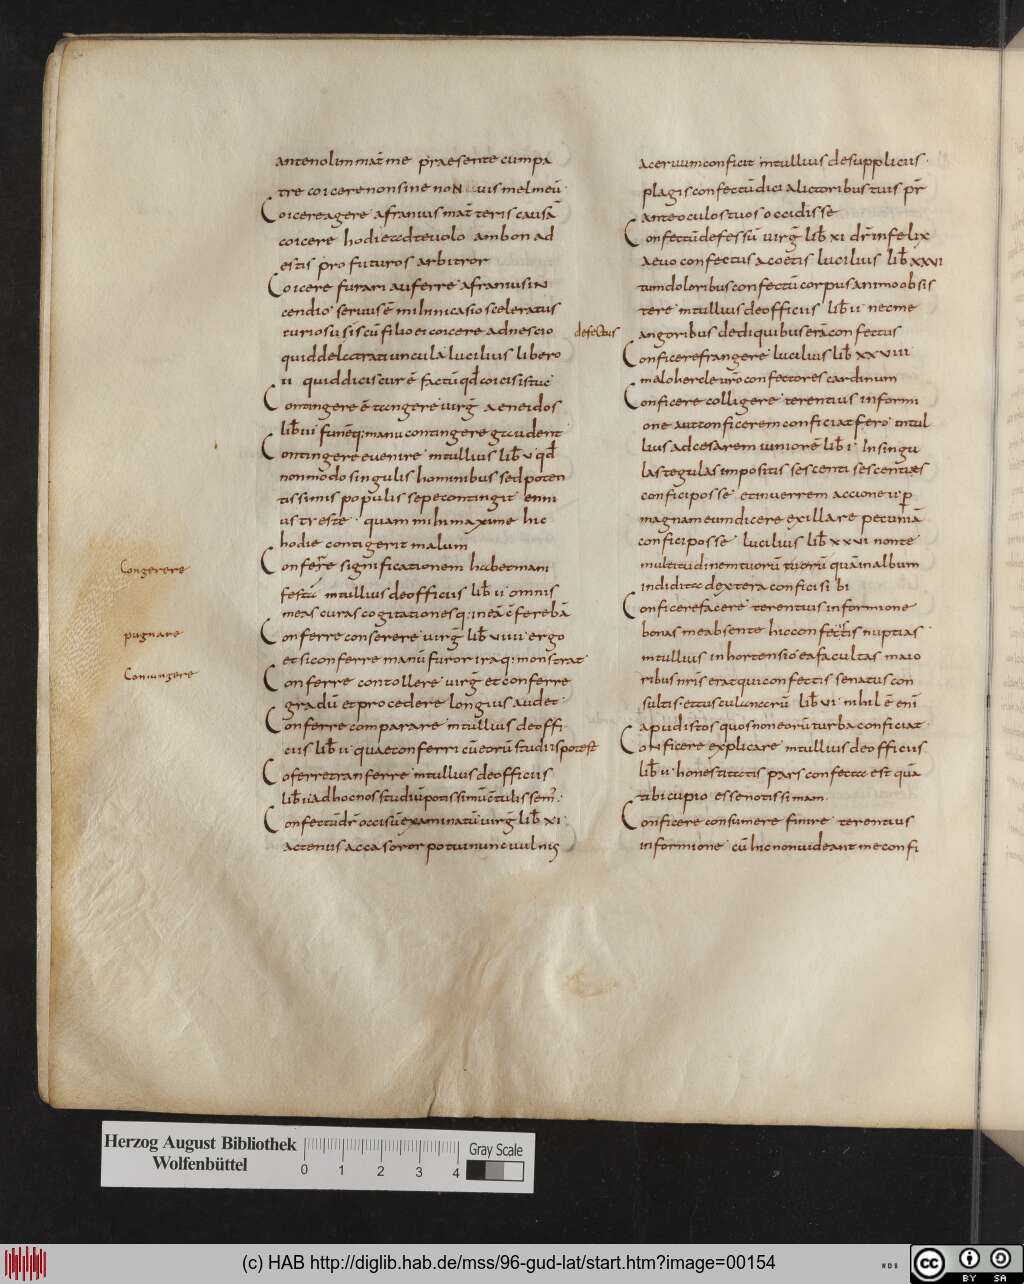 antenolim mat̄ me praesente cumpa
tre coicere non sine noN uis melmeū
Coicere agere afranius mat̄teris causā
coicere hodie ad te uolo ambon ad
estis pro futuros arbitror
Coicere furari auferre afranius iN
cendio seruus ē mihinicasio sceleratus
curiosu si sic cū filio ei coicere ad nescio
quid delatratiuncula lucilius libero
ii quid dicis cur ē factū qd̄ coicis istuc
Contingere ē tangere uirḡ aeneidos
lib̄ ii funēq; manu contingere gaudent
Contingere euenire mtullius lib̄ v qd̄
non modo singulis hominibus sed poten
tissimis populis sepe contingit enni
us treste quam mihi maxime hic
hodie contigerit malum
Conferre significationem habet mani
festā mtullius de officiis lib̄ ii omnis
meas curas cogitationesq; in eā c̄ferebā
Conferre conserere uirḡ lib̄ viiii ergo
et si conferre manū furor iraq; monstrat
Conferre contollere uirḡ et conferre
gradū et procedere longius audet
Conferre comparare mtullius de offi
ciis lib̄ ii quae conferri cū eorū studiis potest
Coferre tranferre mtullius de officiis
lib̄ ii ad hoc nos studiū potissimū c̄tulissem̄
Confectū dr̄ occisū examinatū uirḡ lib̄ xi
actenus acca soror potui nunc uulnus
Congerere
pugnare
Coniungere
defectus
aceruum conficit mtullius de suppliciis
plagis confectū dici a lictoribus tuis pr̄
ante oculos tuos occidisse
Confectū defessū uirḡ lib̄ xi dr̄ infelix
aeuo confectus acoetis lucilius lib̄ xxvi
tum doloribus confectū corpus animo obsis
tere mtullius de officiis lib̄ ii nec me
angoribus dedi quibus erā confectus
Conficere frangere lucilius lib̄ xxviii
malo hercle ur̄o confectores cardinum
Conficere colligere terentius in formi
one aut conficerem conficiat fero mtul
lius ad cesarem iuniorē lib̄ i In singu
las tegulas impositis sescenti sescenties
confici posse et in uerrem accione ii p̄
magnam eum dicere exillare pecuniā
confici posse lucilius lib̄ xxvi nonte
multitudinem tuorū tuorū quā in album
indidita dextera confici sibi
Conficere facere terentius in formione
bonas me absente hic confectis nuptias
mtullius in hortensio ea facultas maio
ribus nr̄is erat qui confectis senatus con
sultis lib̄ vi nihil ē eni
apud istos quos non eorū turba conficiat
Conficere explicare mtullius de officiis
lib̄ ii honestitatis pars confecta est quā
tibi cupio esse notissimam
Conficere consumere finire terentius
in formione cū hic non uideant me confi
Herzog August Bibliothek
Wolfenbüttel
0 1 2 3 4
Gray Scale
(c) HAB http://diglib.hab.de/mss/96-gud-lat/start.htm?image=00154
WDB
cc BY SA